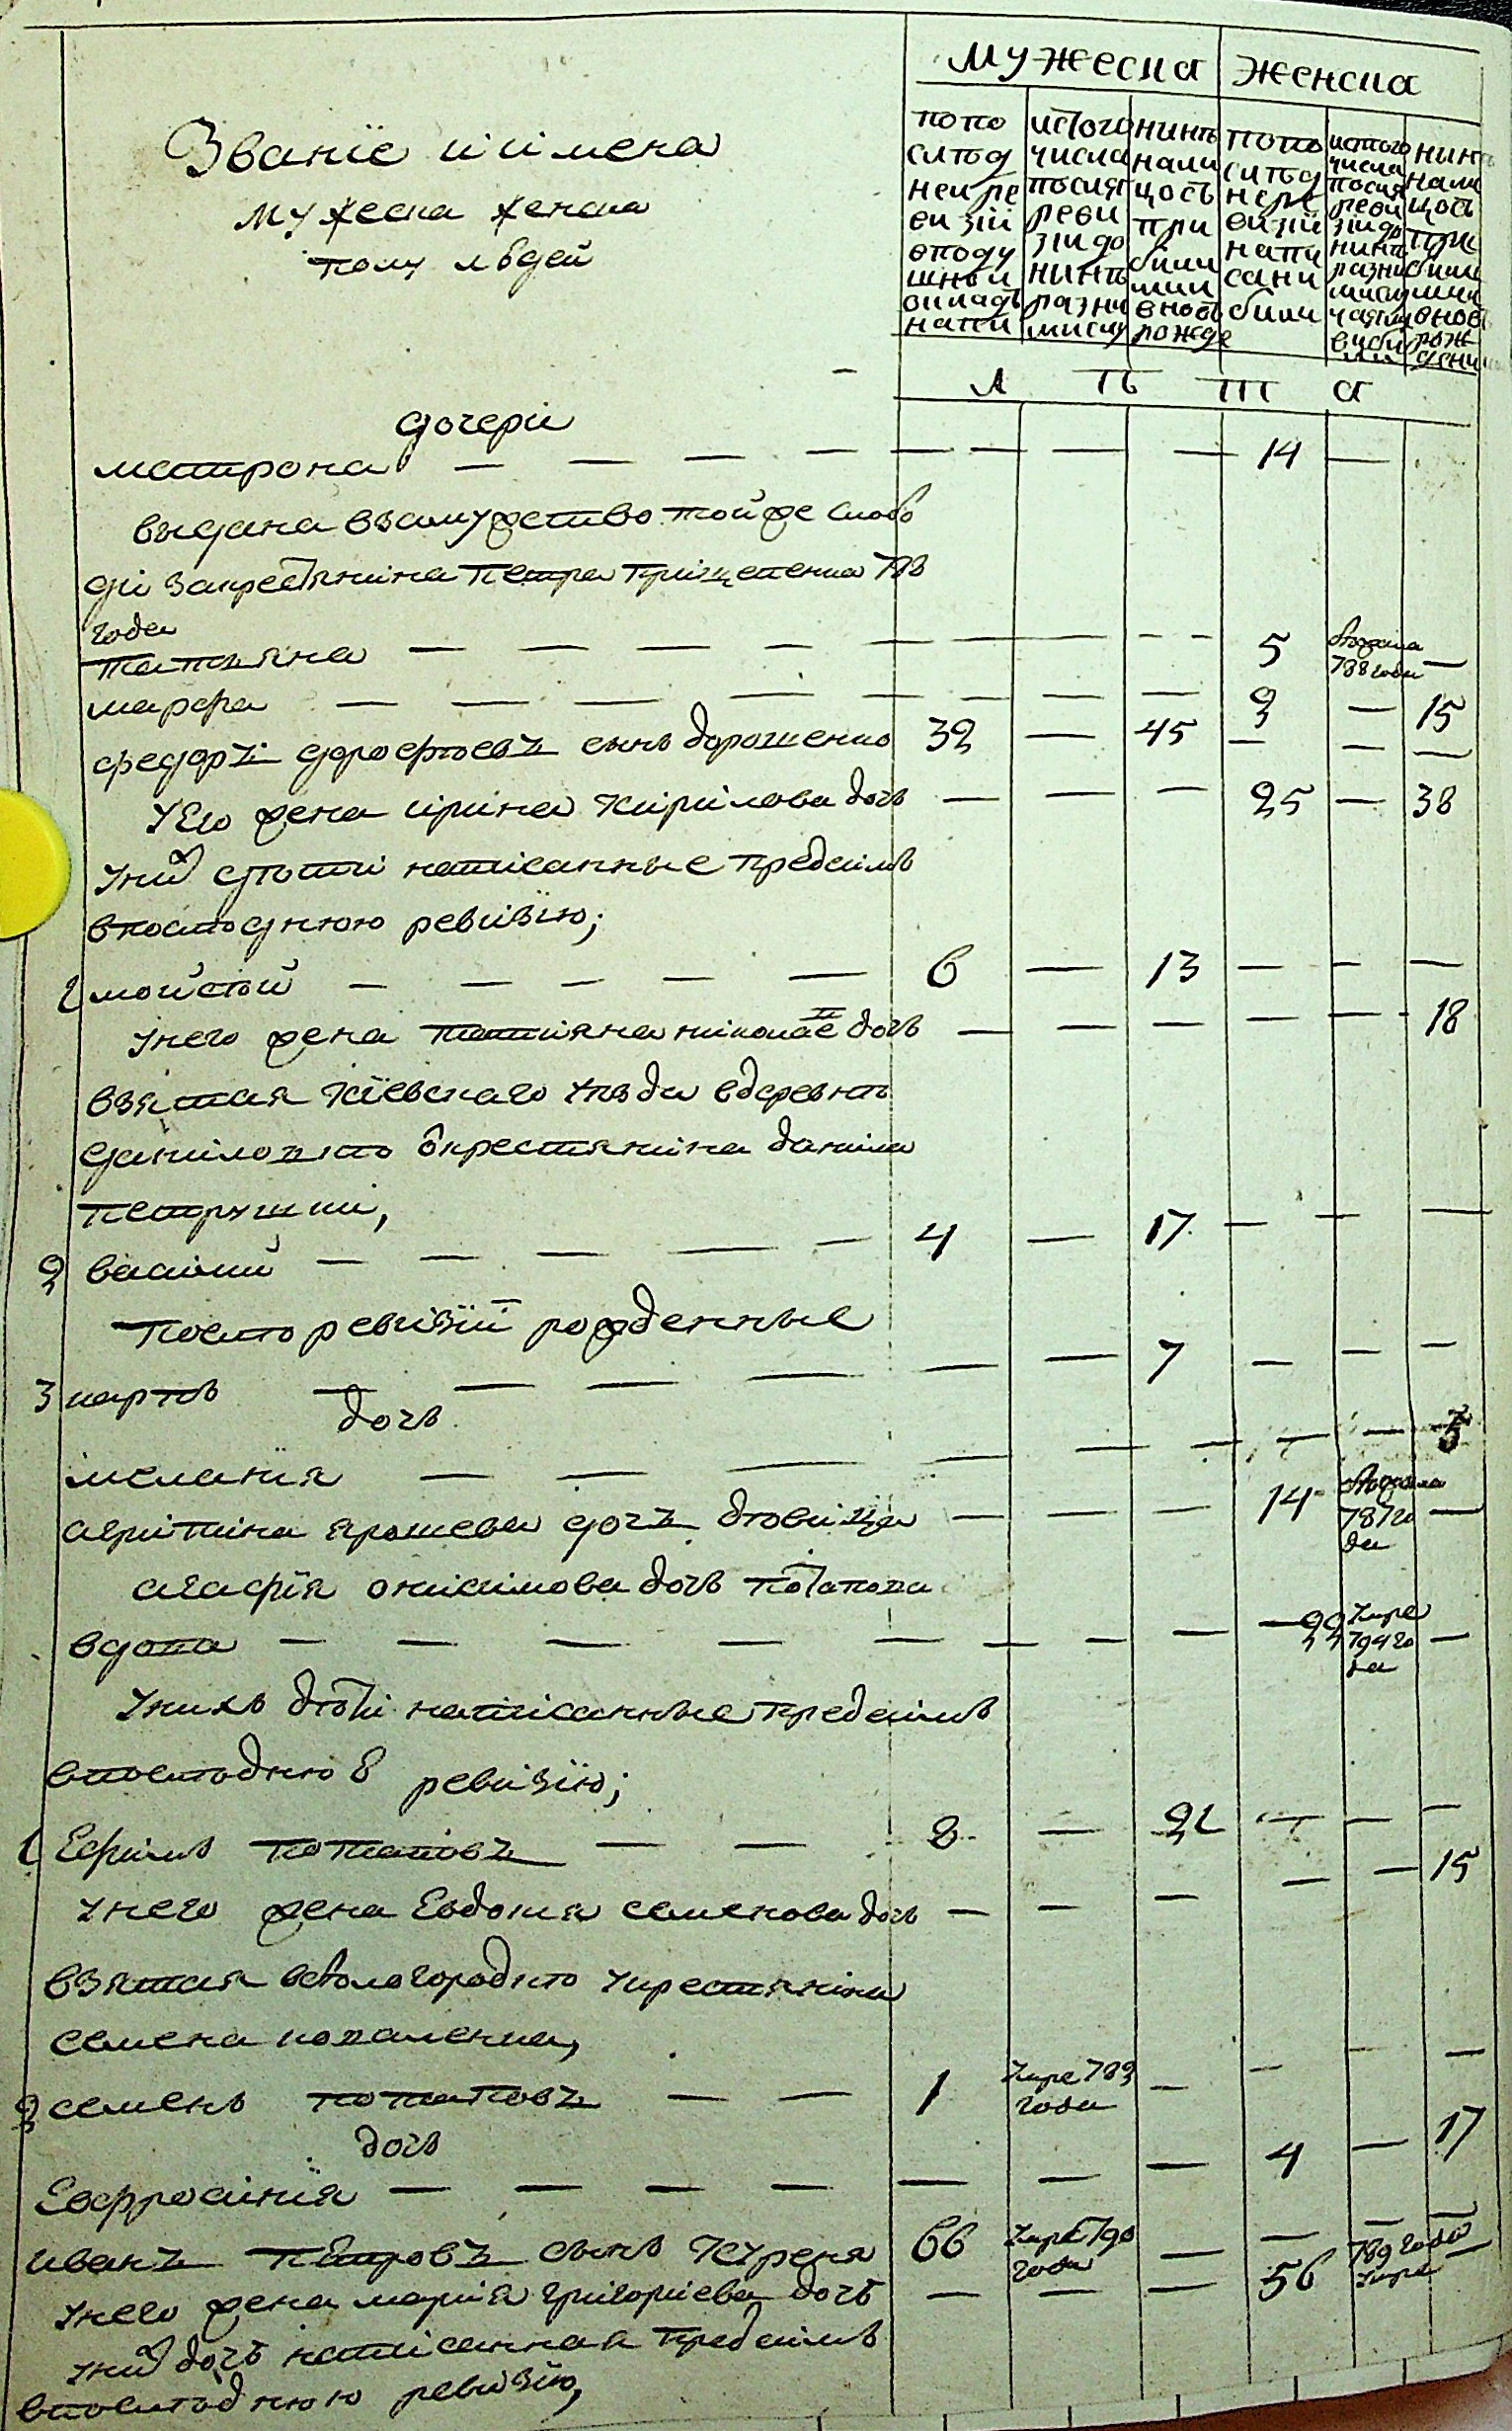 мужеска женска
Званїе иимена
мужеска женска
полу людей
попо
слѣд
неире
визїи
вподу
шной
окладъ
напи
истого
числа
послѣ
реви
зіи до
нинѣ
разни
мислу
нинѣ
нали
цость
при
били
ми
вновь
рожде
попо
слѣд
нере
визїи
напи
сани
били
истого
числа
послѣ
реви
зіи до
нинѣ
разни
нинѣ
нали
цось
при
били
ми
вновь
рож
дени
л ѣ т а
дочери
матрона — — — — — — — — 14 —
выдана взамужство тойже слобо
ді закрестянина петра прищепенка 783
года
татьяна — — — — — — — — 5 788 года —
марфа — — — — — — — — 9 — 15
федоръ дорофѣевъ сынъ дорошенко 39 — 45 — — —
Уего жена ирина кирилова дочь — — — 25 — 38
уних дѣти написанные предсимъ
впослѣднюю ревизїю;
1 мойсей — — — — — 6 — 13 — — —
унего жена татияна николае дочь — — — — — 18
взятая кїевскаго уезда вдеревнѣ
даниловкѣ укрестянина данила
петрушки,
2 василий — — — — — 4 — 17 — — —
послѣ ревизїи рожденные
3 карпъ — — — — — — 7 — — —
дочь
меланїя — — — — — — — — — 5
агрипина ярошева дочъ дѣвица — — — 14 787 го —
да
агафїя онисимова дочь потапова
вдова — — — — — — — — — 99 умре
794 го —
да
унихъ дѣти написанные предсимъ
впослѣднюю ревизїю;
1 Ефимъ потаповъ — — 8 — 21 — — —
унего жена Евдокия семенова дочь — — — — — 15
взятая вбѣлогородкѣ укрестянина
семена коваленка,
2 семенъ потаповъ — — 1 умре 783 — — — —
года
дочь
Евфросинїя — — — — — — — 4 — 17
иванъ петровъ сынъ куреня 66 умре 790 — — — —
года
унего жена мария григориева дочь — — — 56 789 года —
умре
уних дочь написанная предсимъ
впослѣднюю ревизїю,